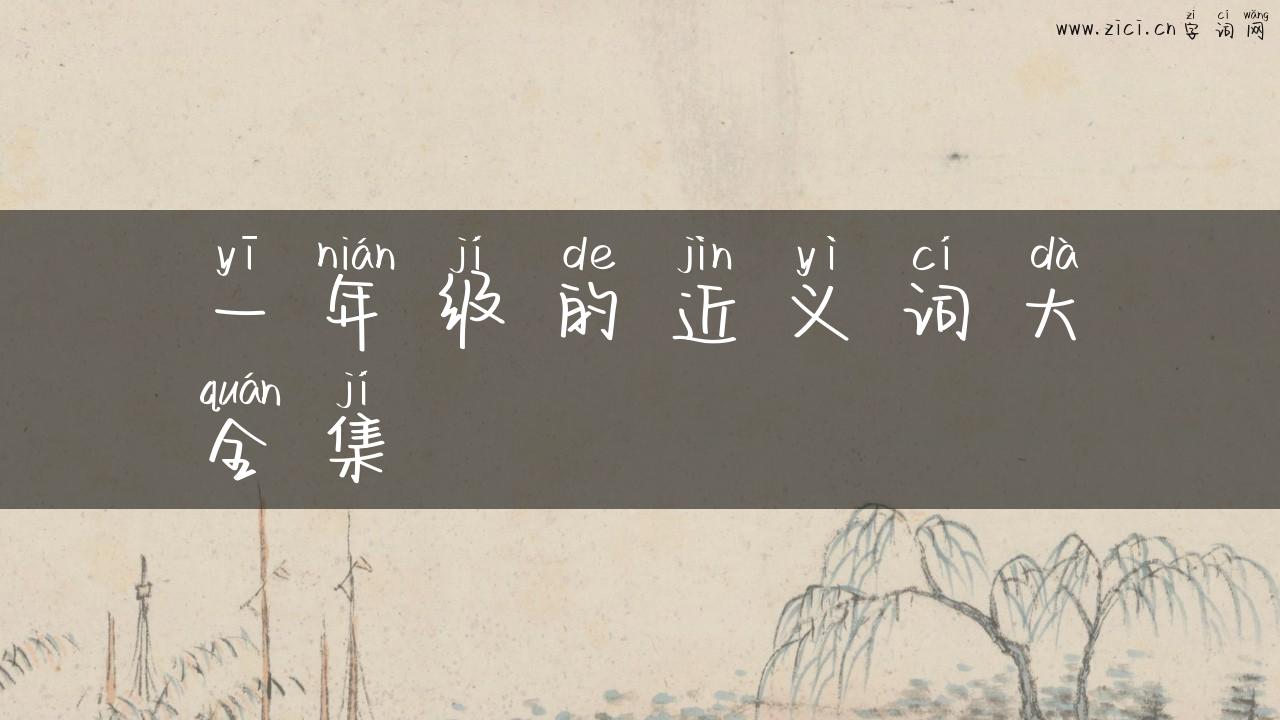 zì cí wǎng
www.zici.cn 字词网
yī nián jí de jìn yì cí dà
一年级的近义词大
quán jí
全集